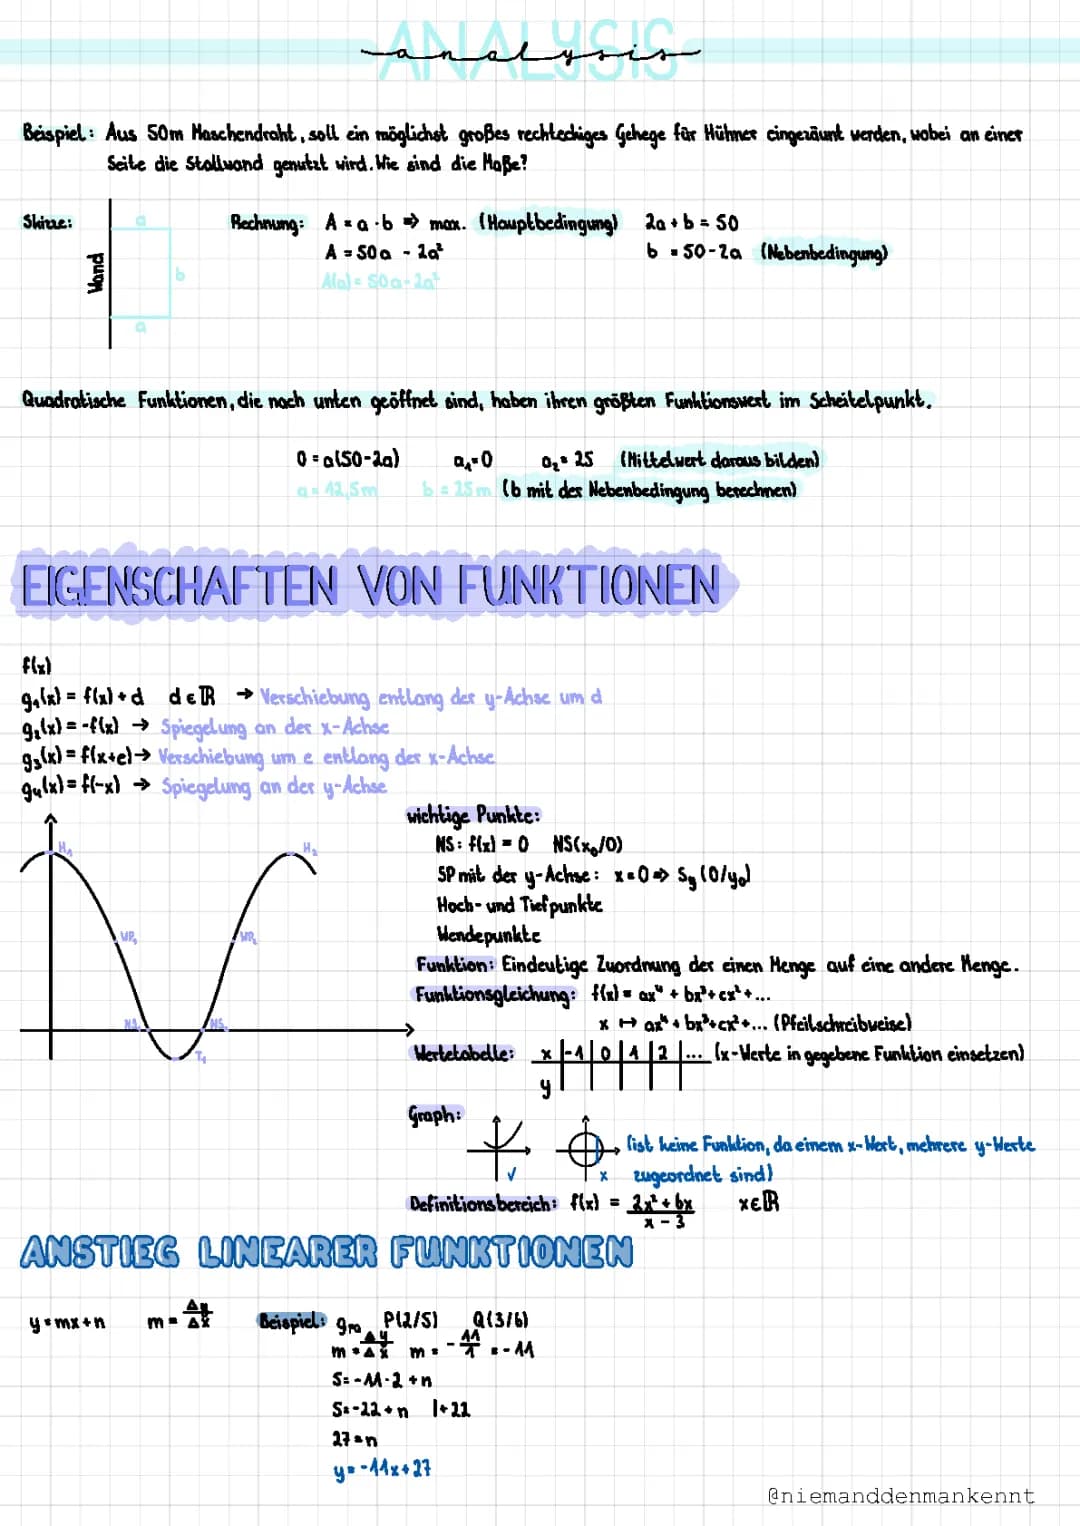 ANALYSIS
analysis
Beispiel: Aus 50m Maschendraht, soll ein möglichst großes rechteckiges Gehege für Hühner eingezäunt werden, wobei an einer
Seite die Stallwand genutzt wird. Wie sind die Maße?
Skizze:
Wand
a
b
a
Rechnung: A = a · b ⇒ max. (Hauptbedingung) 2a + b = 50
A = 50a - 2a² b = 50-2a (Nebenbedingung)
A(a) = 50a-2a²
Quadratische Funktionen, die nach unten geöffnet sind, haben ihren größten Funktionswert im Scheitelpunkt.
0 = a(50-2a) a₁=0 a₂= 25 (Mittelwert daraus bilden)
a = 12,5m b = 25m (b mit der Nebenbedingung berechnen)
EIGENSCHAFTEN VON FUNKTIONEN
f(x)
g₁(x) = f(x) + d d ∈ ℝ → Verschiebung entlang der y-Achse um d
g₂(x) = -f(x) → Spiegelung an der x-Achse
g₃(x) = f(x+e) → Verschiebung um e entlang der x-Achse
g₄(x) = f(-x) → Spiegelung an der y-Achse
H₁
H₂
WP₁
WP₂
NS₁
NS₂
T₁
wichtige Punkte:
NS: f(x) = 0 NS(x₀/0)
SP mit der y-Achse: x=0 ⇒ Sy (0/y₀)
Hoch- und Tiefpunkte
Wendepunkte
Funktion: Eindeutige Zuordnung der einen Menge auf eine andere Menge.
Funktionsgleichung: f(x) = ax⁴ + bx³+cx²+...
x ↦ ax⁴ + bx³+cx²+... (Pfeilschreibweise)
Wertetabelle: x |-1| 0 | 1 | 2 |... (x-Werte in gegebene Funktion einsetzen)
y
Graph:
✓
x
(ist keine Funktion, da einem x-Wert, mehrere y-Werte
zugeordnet sind)
Definitionsbereich: f(x) = 2x²+6x / x - 3 x∈ℝ
ANSTIEG LINEARER FUNKTIONEN
y=mx+n m = Δy/Δx Beispiel: P(2/5) Q(3/6)
m = Δy/Δx m = -11/1 = -11
5= -11·2 +n
5=-22+n |+22
27=n
y= -11x+27
@niemanddenmankennt